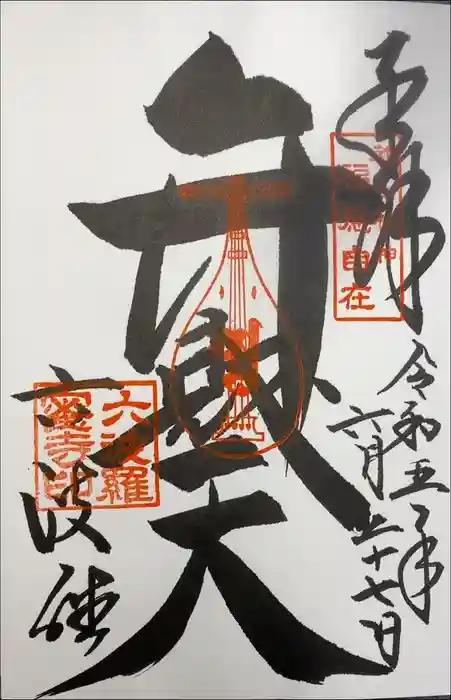 奉拝
令和五年
六月二十七日
弁財天
六波羅
六波羅
蜜寺印